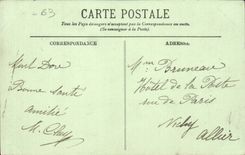 -63
CARTE POSTALE
Tous les Pays étrangers n'acceptent pas la Correspondance au recto.
(Se renseigner à la Poste).
CORRESPONDANCE
ADRESSE
Mont Dore
Bonne Santé
amitié
M.
Mme Bruneau
Hôtel de la Poste
rue de Paris
Vichy
Allier